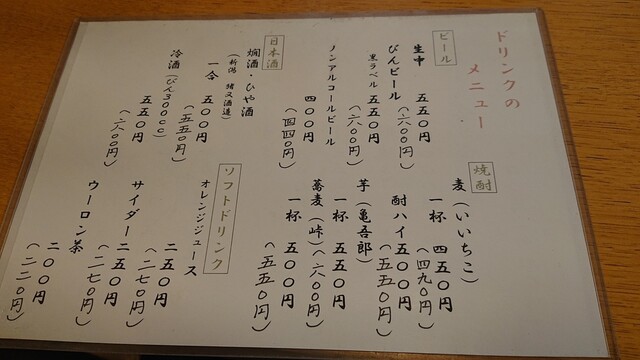 ドリンクの
メニュー
ビール
生中
五五〇円
(六〇〇円)
びんビール
黒ラベル 五五〇円
(六〇〇円)
ノンアルコールビール
四〇〇円
(四四〇円)
日本酒
燗酒・ひや酒
(新潟 猪又酒造)
一合 五〇〇円
(五五〇円)
冷酒(びん300cc)
五五〇円
(六〇〇円)
焼酎
麦(いいちこ)
一杯 四五〇円
(四九〇円)
酎ハイ 五〇〇円
(五五〇円)
芋(亀五郎)
一杯 五五〇円
(六〇〇円)
蕎麦(峠)
一杯 五〇〇円
(五五〇円)
ソフトドリンク
オレンジジュース
二五〇円
(二七〇円)
サイダー 二五〇円
(二七〇円)
ウーロン茶
二〇〇円
(二二〇円)